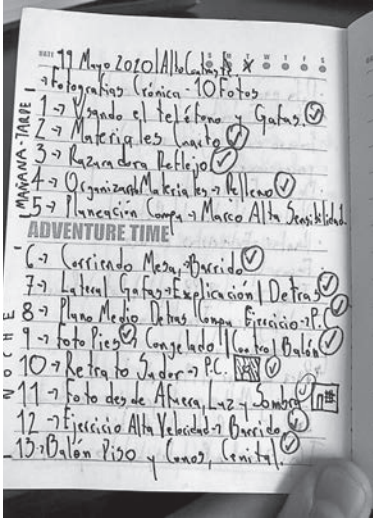 DATE 19 Mayo 2020 | Alto Contraste S M T W T F S
→ Fotografías Crónica - 10 Fotos
MAÑANA-TARDE
1 → Usando el teléfono y Gafas.
2 → Materiales
3 → Reflejo
4 → Organizand Materiales → Relleno
5 → Planeación Compu → Marco Alta Sensibilidad
ADVENTURE TIME
NOCHE
6 → Corriendo Mesa, → Barrido
7 → Lateral Gafas → Explicación | Detras
8 → Plano Medio Detras Compu Ejercicio → P.C.
9 → Foto Pies Congelado || Control Balón
10 → Retrato Sudor → P.C.
11 → Foto desde Afuera, Luz y Sombra
12 → Ejercicio Alta Velocidad → Barrido
13 → Balón Piso y Conos, Cenital.